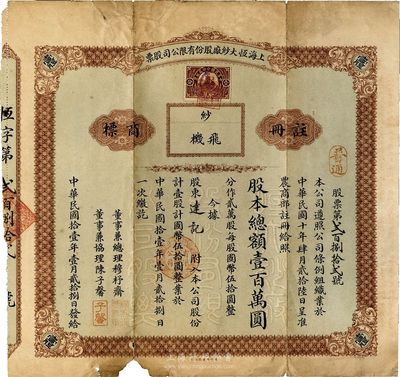 上海恆大紗廠股份有限公司股票
註冊
商標
紗
飛機
普通
股票第貳百捌拾貳號
本公司遵照公司條例組織業於
中華民國十年肆月貳拾陸日呈准
農商部註冊給照
股本總額壹百萬圓
分作貳萬股每股國幣伍拾圓整
今據
股東達記 附入本公司股份
計壹股計國幣伍拾圓整業於
中華民國拾壹年壹月貳拾捌日
一次繳訖
董事兼總理穆杼齋
董事兼協理陳子馨
中華民國拾壹年壹月貳拾捌日發給
恆字第